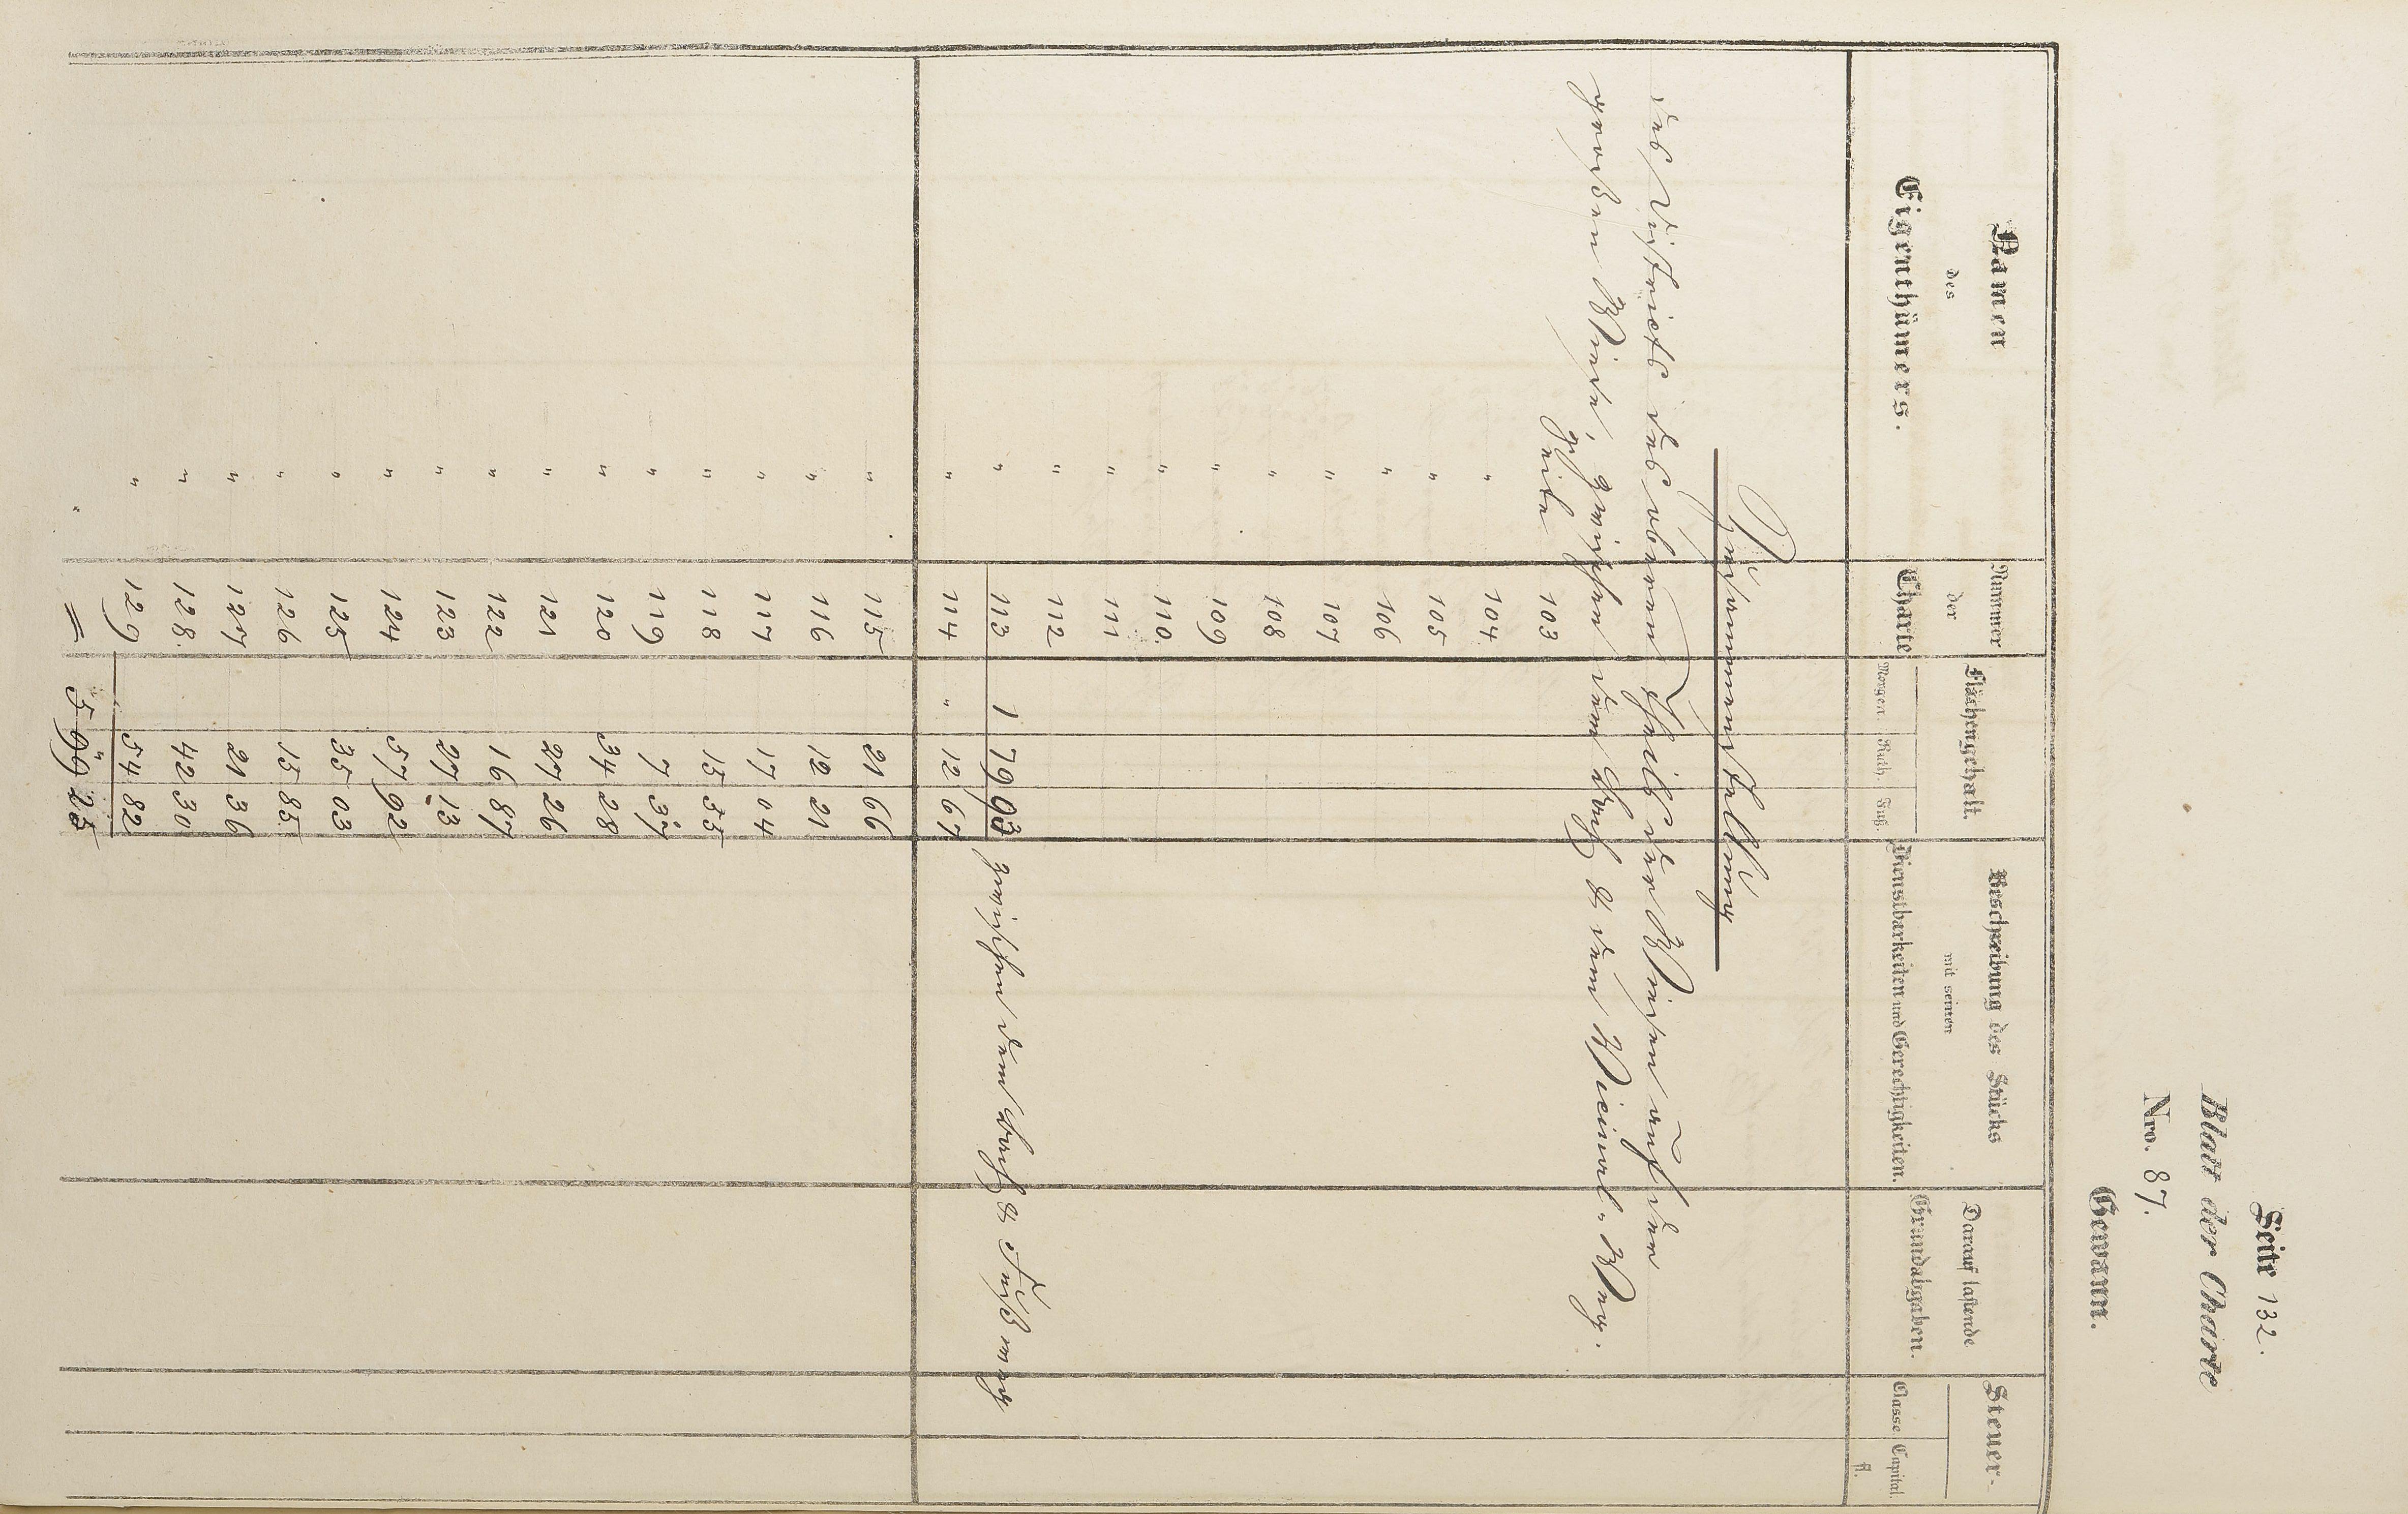 Seite 132.
Blatt der Charte
Nro. 87.
Gewann.
Namen des Eigenthümers.
Nummer der Charte
Flächengehalt.
Morgen. Ruth. Fuß.
Beschreibung des Stücks
mit seinen
Dienstbarkeiten und Gerechtigkeiten.
Darauf lastende Grundabgaben.
Steuer-
Classe. Capital. fl.
Zusammenstellung
des Districts des oberen Theils der Wiesen auf der
großen Wiese, zwischen dem Bach & dem Vicinal-Weg.
Seite 103
" 104
" 105
" 106
" 107
" 108
" 109
" 110.
" 111
" 112
" 113 1 79 03 zwischen dem Bach & Fußweg
" 114 " 12 67
" 115 21 66
" 116 12 21
" 117 17 04
" 118 15 55
" 119 7 37
" 120 34 28
" 121 27 26
" 122 16 87
" 123 27 13
" 124 57 92
" 125 35 03
" 126 15 85
" 127 21 36
" 128. 42 30
" 129 54 82
" = 5